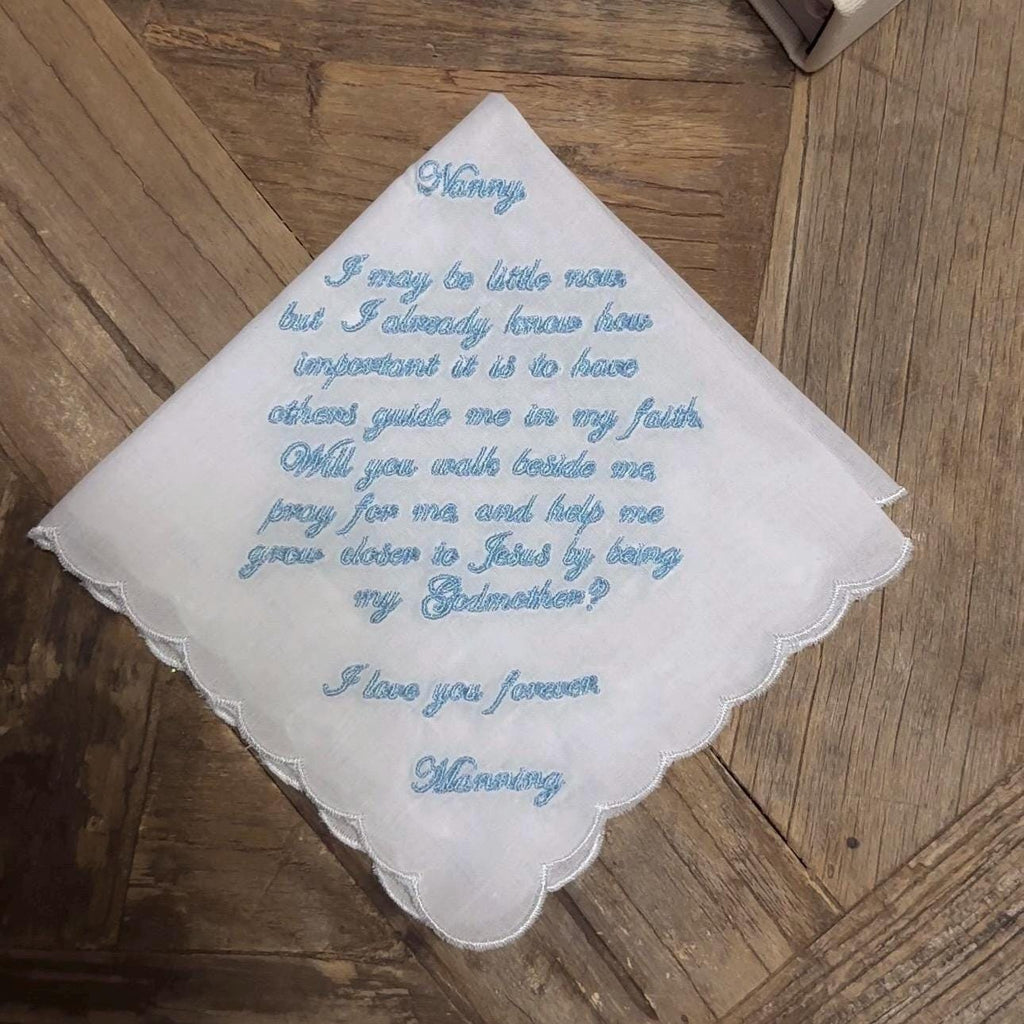 Nanny,
I may be little now,
but I already know how
important it is to have
others guide me in my faith.
Will you walk beside me,
pray for me, and help me
grow closer to Jesus by being
my Godmother?
I love you forever.
Manning